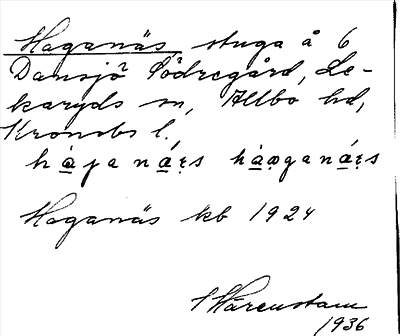 Haganäs, stuga å 6
Dansjö Södregård, Le-
karyds sn, Allbo hd,
Kronobs l.
Haganäs kb 1924
Wärenstam
1936